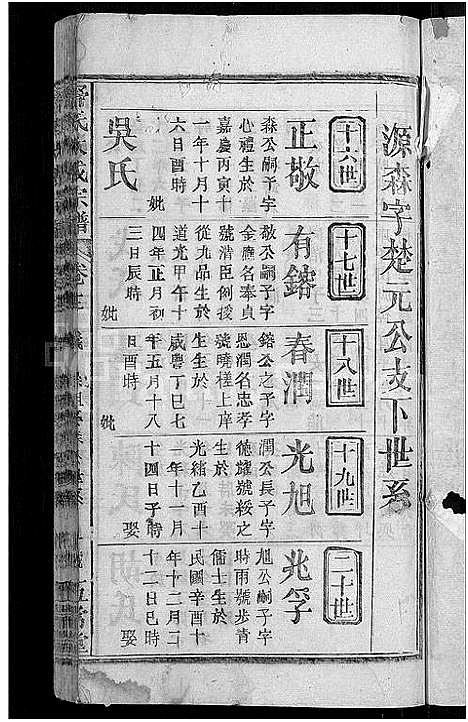 源森字楚元公支下世系
十六世
正敬
森公嗣子字
心禮生於
嘉慶丙寅十
一年十月十
六日酉時
妣
吳氏
十七世
有鎔
敬公嗣子字
金應名奉貞
號清臣例授
從九品生於
道光甲午十
四年正月初
三日辰時
妣
十八世
春潤
鎔公之子字
恩潤名忠孝
號曉槎上庠
生生於
咸豐丁巳七
年五月十八
日酉時
妣
十九世
光旭
潤公長子字
德耀號綏之
生於
光緒乙酉十
一年十一月
十四日子時
娶
二十世
兆孚
旭公嗣子字
時雨號步青
儒士生於
民國辛酉十
年十二月二
十二日巳時
娶